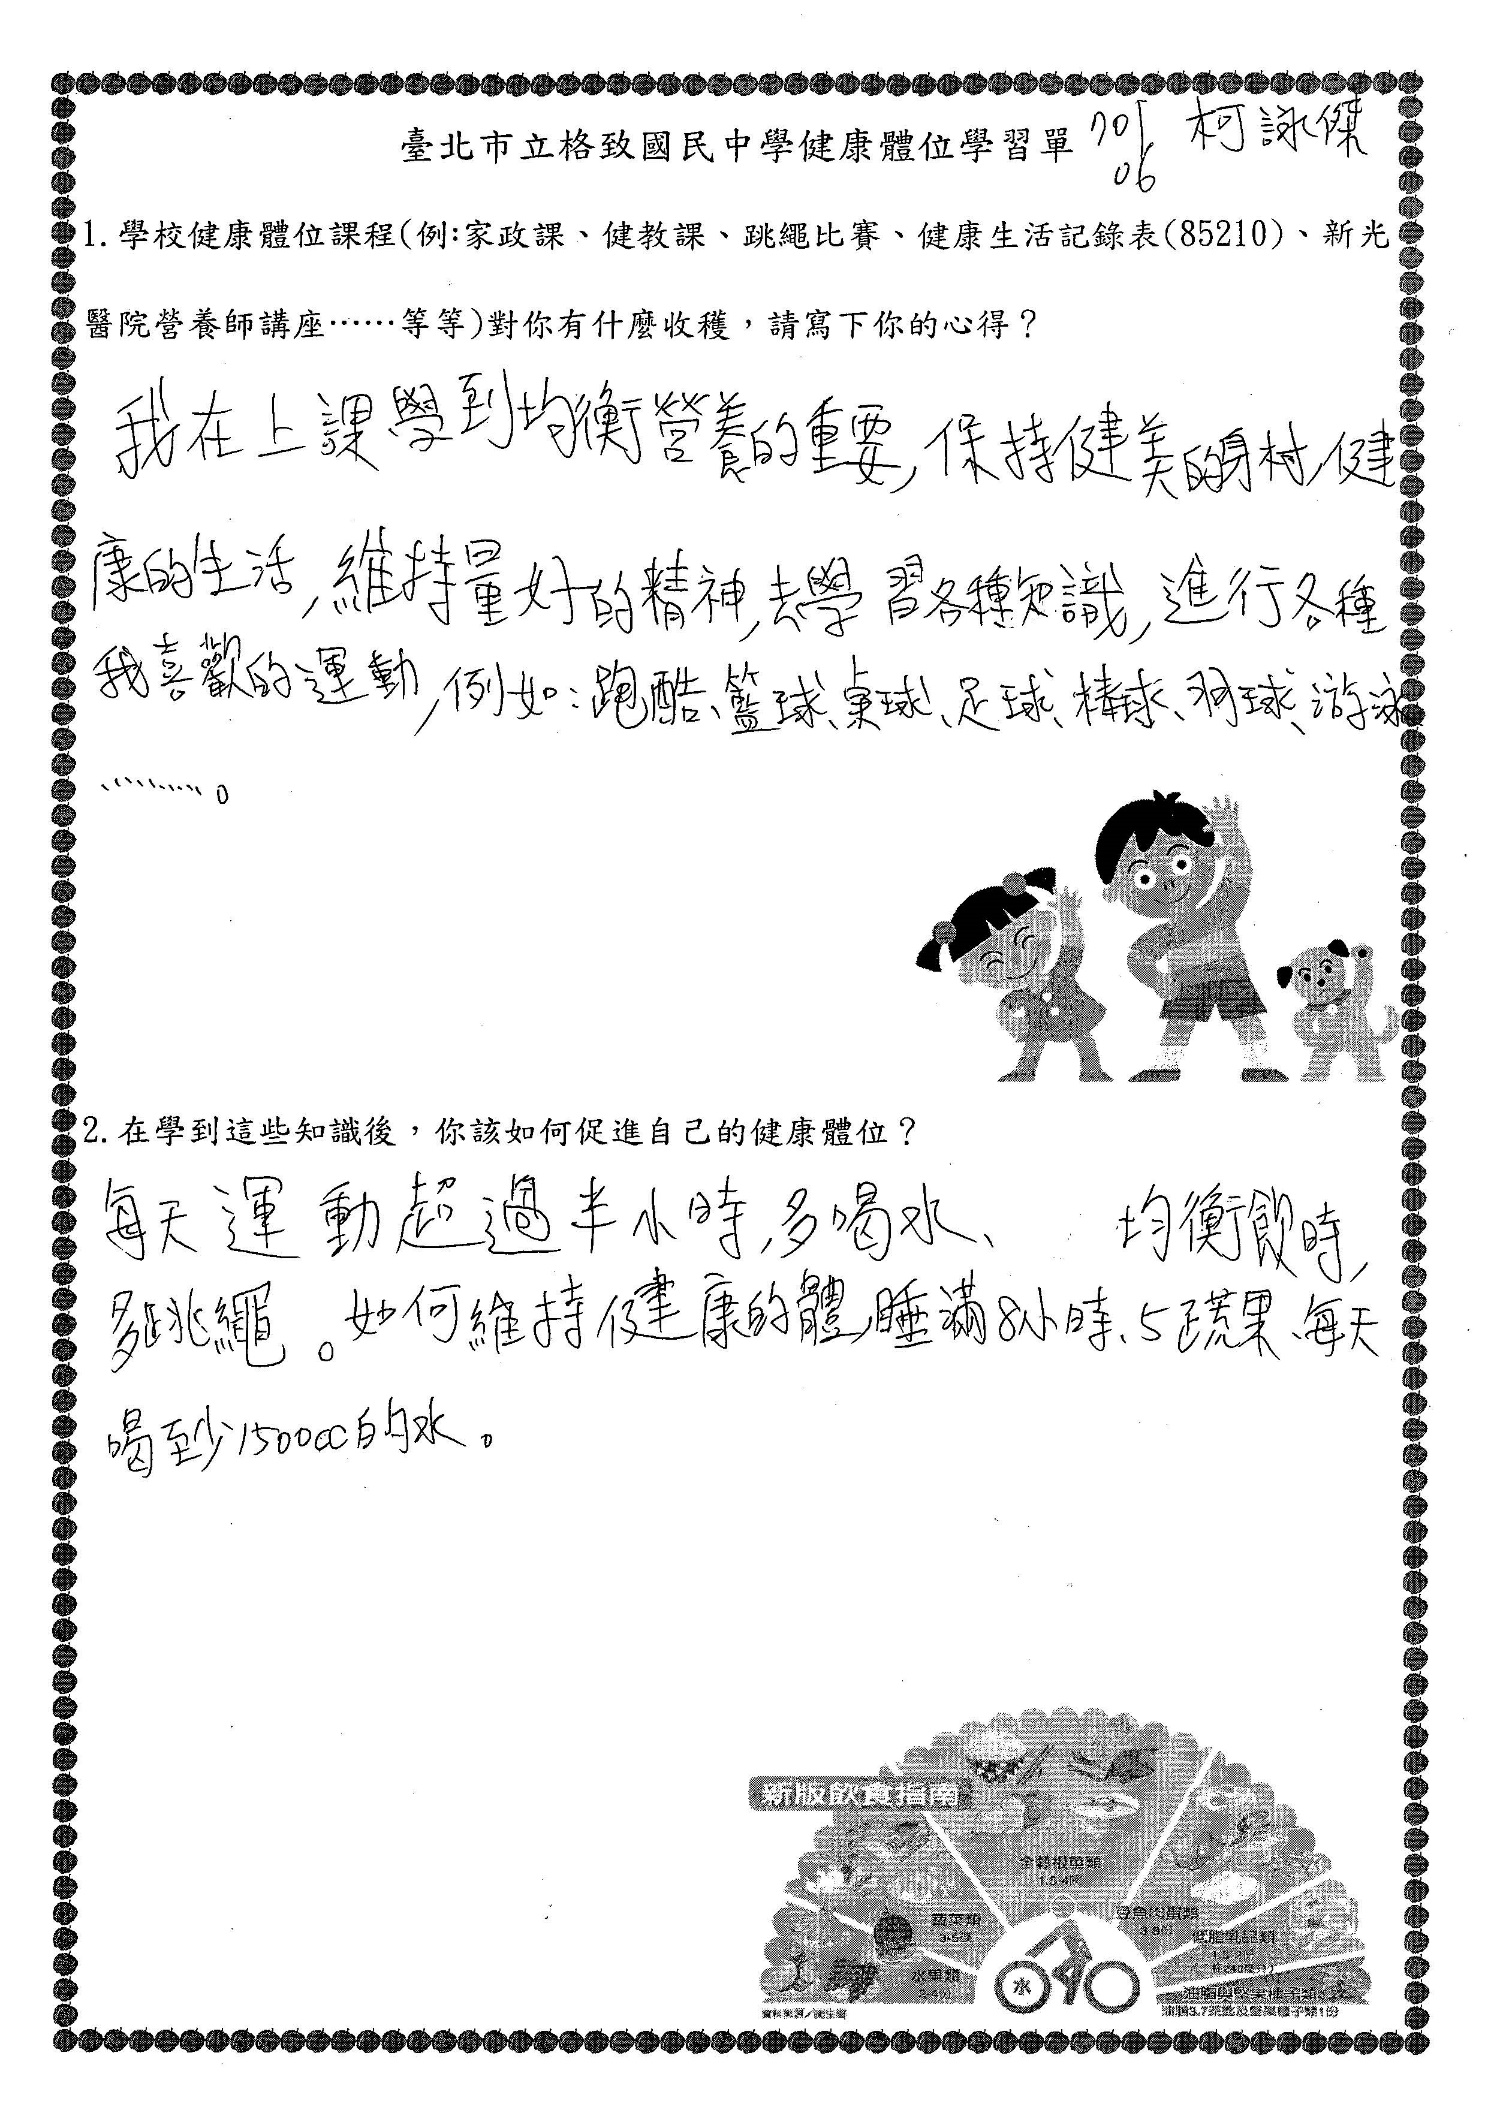 臺北市立格致國民中學健康體位學習單 701 柯詠傑
06
1.學校健康體位課程(例:家政課、健教課、跳繩比賽、健康生活記錄表(85210)、新光
醫院營養師講座……等等)對你有什麼收穫，請寫下你的心得？
我在上課學到均衡營養的重要,保持健美的身材,健
康的生活,維持量好的精神,去學習各種知識,進行各種
我喜歡的運動,例如:跑酷、籃球、桌球、足球、棒球、羽球、游泳
………。
2.在學到這些知識後，你該如何促進自己的健康體位？
每天運動超過半小時,多喝水、 均衡飲時,
多跳繩。如何維持健康的體,睡滿8小時、5蔬果、每天
喝至少1500cc的水。
新版飲食指南
全穀根莖類
1.5-4碗
蔬菜類
3-5碟
豆魚肉蛋類
3-8份
低脂乳品類
水果類
2-4份
水
油脂與堅果種子類
油脂3-7茶匙及堅果種子類1份
資料來源／衛生署